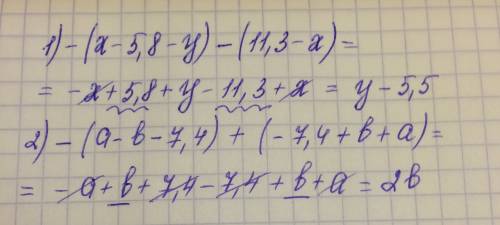 1) -(x-5,8-y)-(11,3-x)=
= -x+5,8+y-11,3+x = y-5,5
2) -(a-b-7,4)+(-7,4+b+a)=
= -a+b+7,4-7,4+b+a=2b